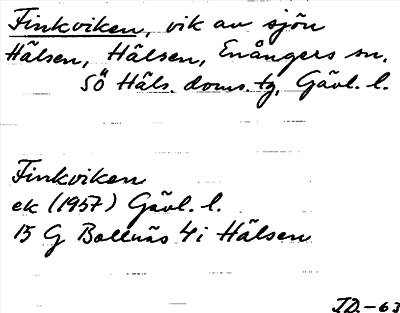 Finkviken, vik av sjön
Hälsen, Hälsen, Enångers sn,
SÖ Häls. doms. tg, Gävl. l.
Finkviken
ek (1957) Gävl. l.
15 G Bollnäs 4i Hälsen
ID.-63